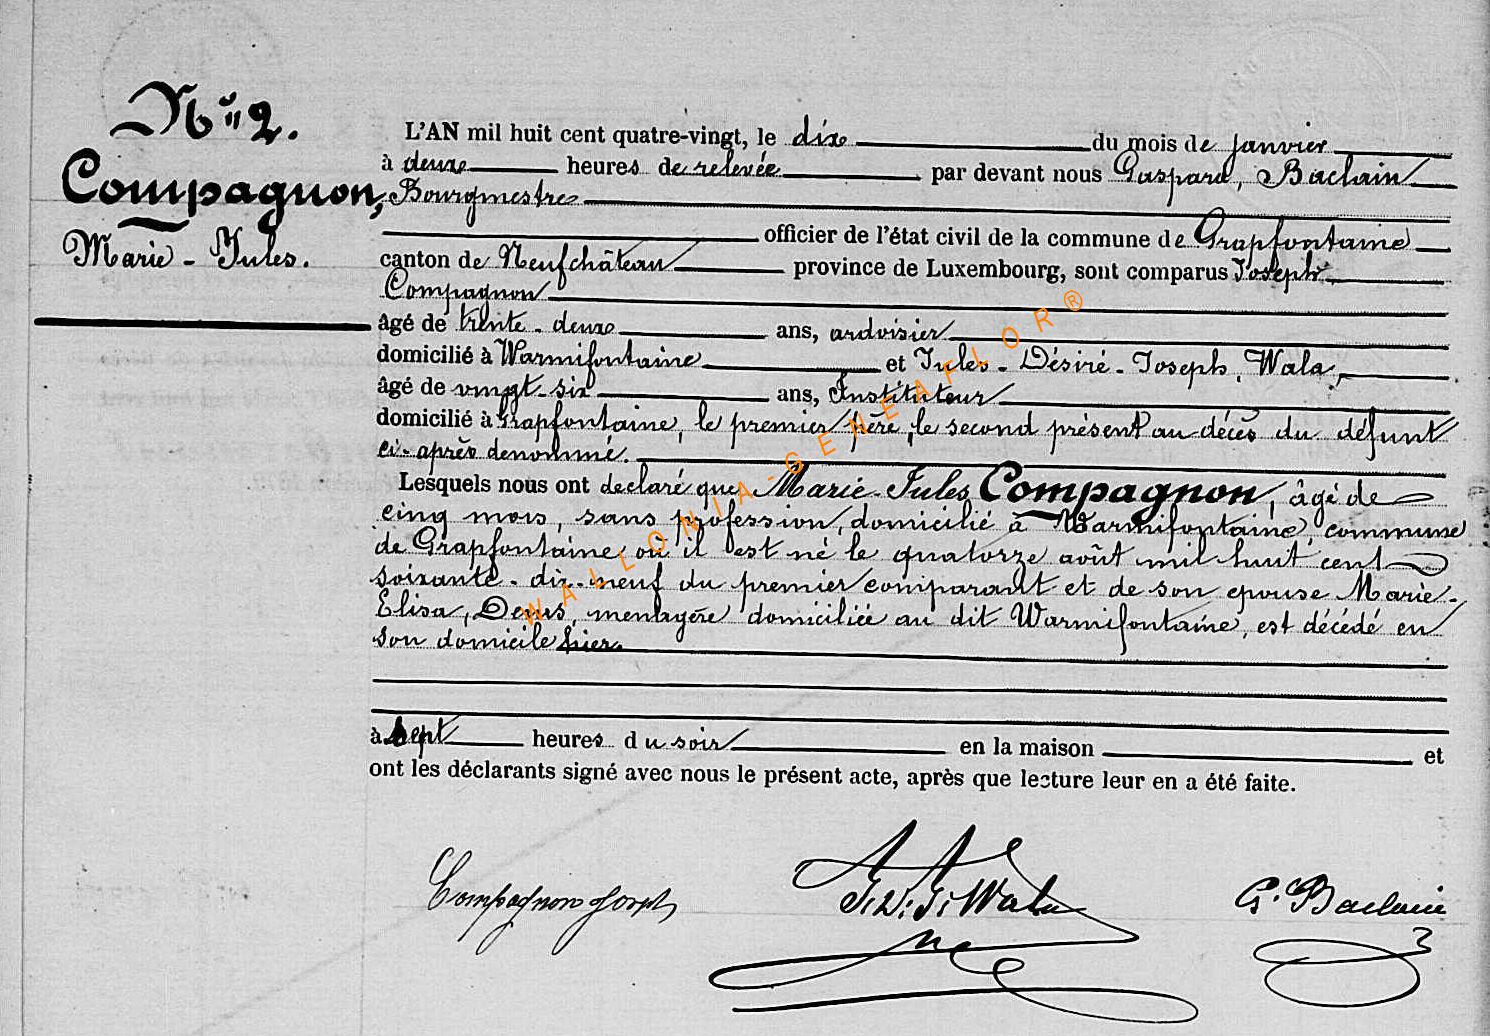 N° 2.
Compagnon,
Marie-Jules.
L'AN mil huit cent quatre-vingt, le dix du mois de janvier
à deux heures de relevée par devant nous Gaspard, Baclain
Bourgmestre
officier de l'état civil de la commune de Grapfontaine
canton de Neufchâteau province de Luxembourg, sont comparus Joseph
Compagnon
âgé de trente-deux ans, ardoisier
domicilié à Warmifontaine et Jules-Désiré-Joseph, Wala,
âgé de vingt-six ans, Instituteur
domicilié à Grapfontaine, le premier père, le second présent au décès du défunt
ci-après dénommé.
Lesquels nous ont declaré que Marie-Jules Compagnon, âgé de
cinq mois, sans profession, domicilié à Warmifontaine, commune
de Grapfontaine où il est né le quatorze août mil huit cent
soixante-dix-neuf du premier comparant et de son epouse Marie-
Elisa, menagère domiciliée au dit Warmifontaine, est décédé en
son domicile hier.
à sept heures du soir en la maison et
ont les déclarants signé avec nous le présent acte, après que lecture leur en a été faite.
Compagnon Joseph
J. D. J. Wala
G. Baclain
WALLONIA-GENEAFLOR®